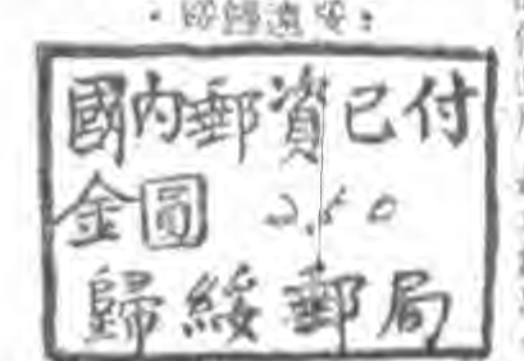 國內郵資已付
金圓 2.50
歸綏郵局